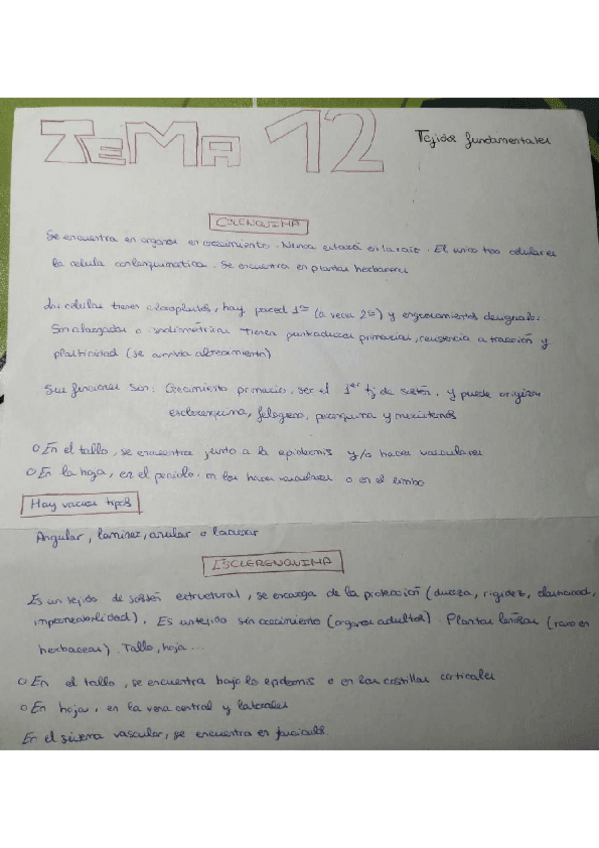 TEMA 12
Tejidos fundamentales
COLENQUIMA
Se encuentra en organos en crecimiento. Nunca estará en la raíz. El único tipo celular es
la celula colenquimatica. Se encuentra en plantas herbaceas
Las celulas tienen cloroplastos, hay pared 1ria (a veces 2ria) y engrosamientos desiguales.
Son alargadas o isodiamétricas. Tienen punteaduras primarias, resistencia a tracción y
plasticidad (se arrastra al crecimiento)
Sus funciones son: Crecimiento primario, ser el 1er tj de sostén, y puede originar
esclerenquima, felogeno, parenquima y meristemos
o En el tallo, se encuentra junto a la epidermis y/o haces vasculares
o En la hoja, en el peciolo. en los haces vasculares o en el limbo
Hay varios tipos
Angular, laminar, anular o lacunar
ESCLERENQUIMA
Es un tejido de sostén estructural, se encarga de la protección (dureza, rigidez, elasticidad,
impermeabilidad). Es un tejido sin crecimiento (organos adultos). Plantas leñosas (raro en
herbaceas). Tallo, hoja...
o En el tallo, se encuentra bajo la epidermis o en las costillas corticales
o En hojas, en la vena central y laterales
En el sistema vascular, se encuentra en